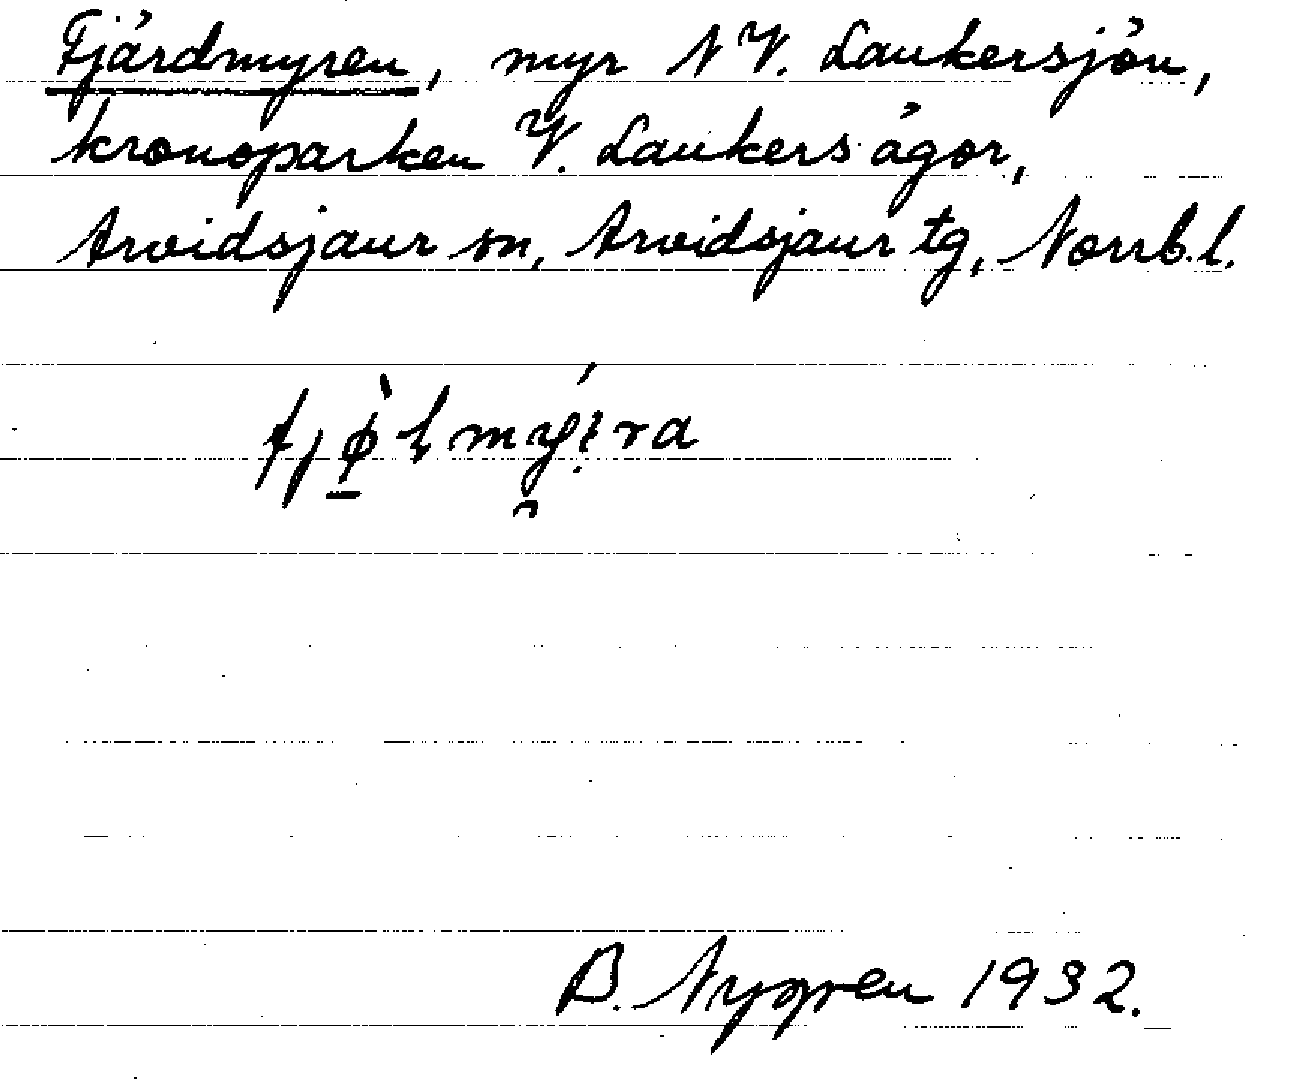 Fjärdmyren, myr N V. Laukersjön,
kronoparken V. Laukers ägor,
Arvidsjaur sn, Arvidsjaur tg, Norrb. l.
B. Nygren 1932.